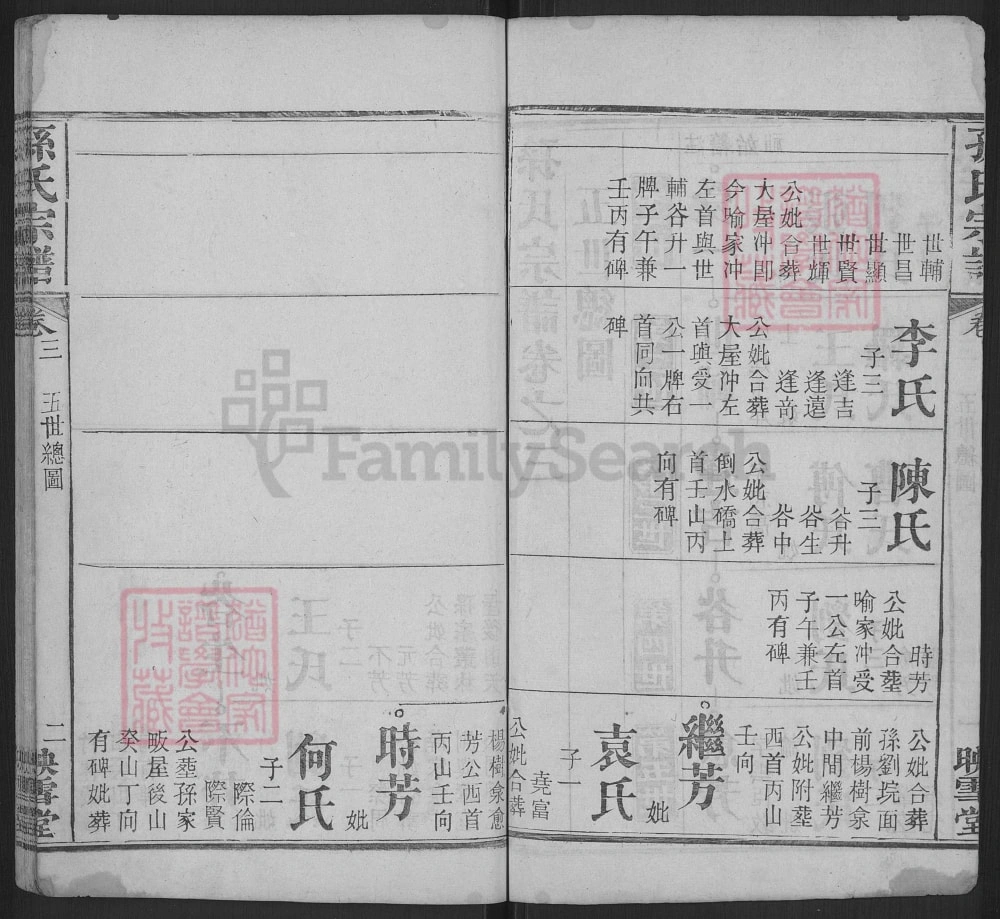 世輔
世昌
世顯
世賢
世輝
公妣合葬
大屋冲即
今喻家冲
左首與世
輔谷升一
牌子午兼
壬丙有碑
李氏
子三
逢吉
逢遠
逢奇
公妣合葬
大屋冲左
首與受一
公一牌右
首同向共
碑
陳氏
子三
谷升
谷生
谷中
公妣合葬
倒水礄上
首壬山丙
向有碑
時芳
公妣合塟
喻家冲受
一公左首
子午兼壬
丙有碑
公妣合葬
孫劉垸面
前楊樹泉
中間繼芳
公妣附塟
西首丙山
壬向
繼芳
妣
袁氏
子一
堯富
公妣合葬
楊樹泉愈
芳公西首
丙山壬向
時芳
妣
何氏
子二
際倫
際賢
公塟孫家
畈屋後山
癸山丁向
有碑妣葬
孫氏宗譜
卷三
五世總圖
二
映雪堂
映雪堂
FamilySearch